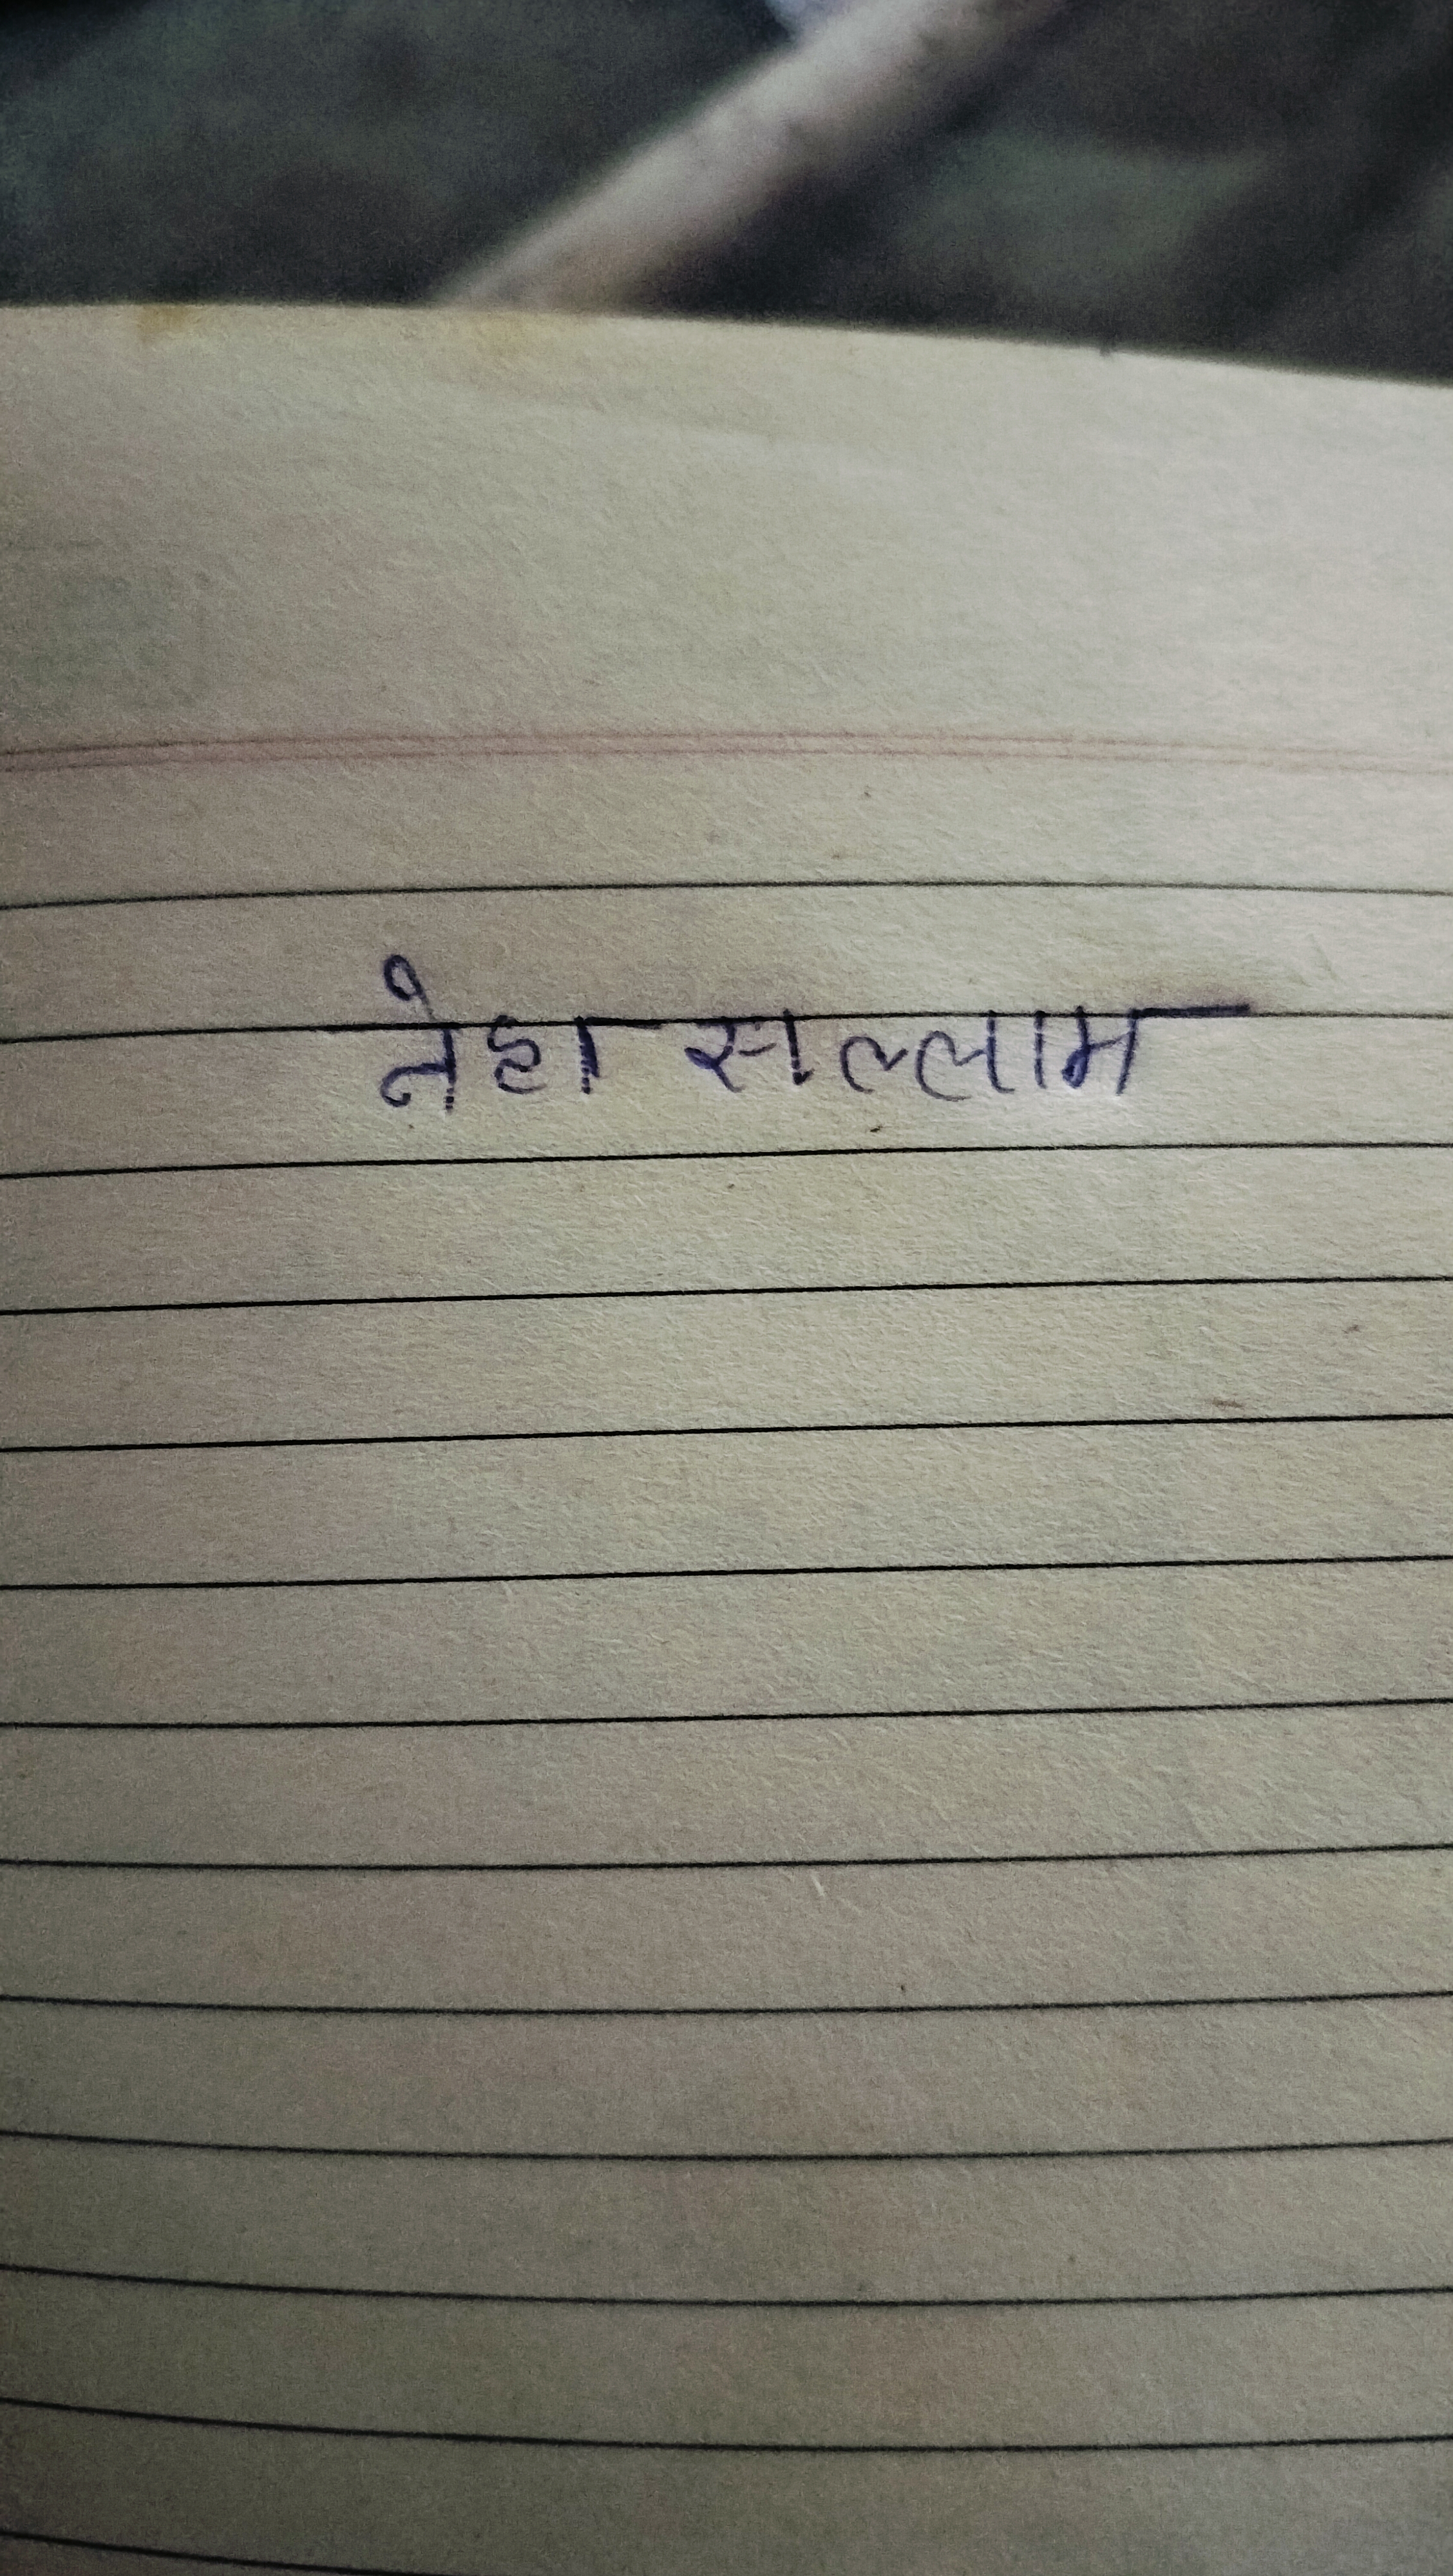 नेहा सल्लाम